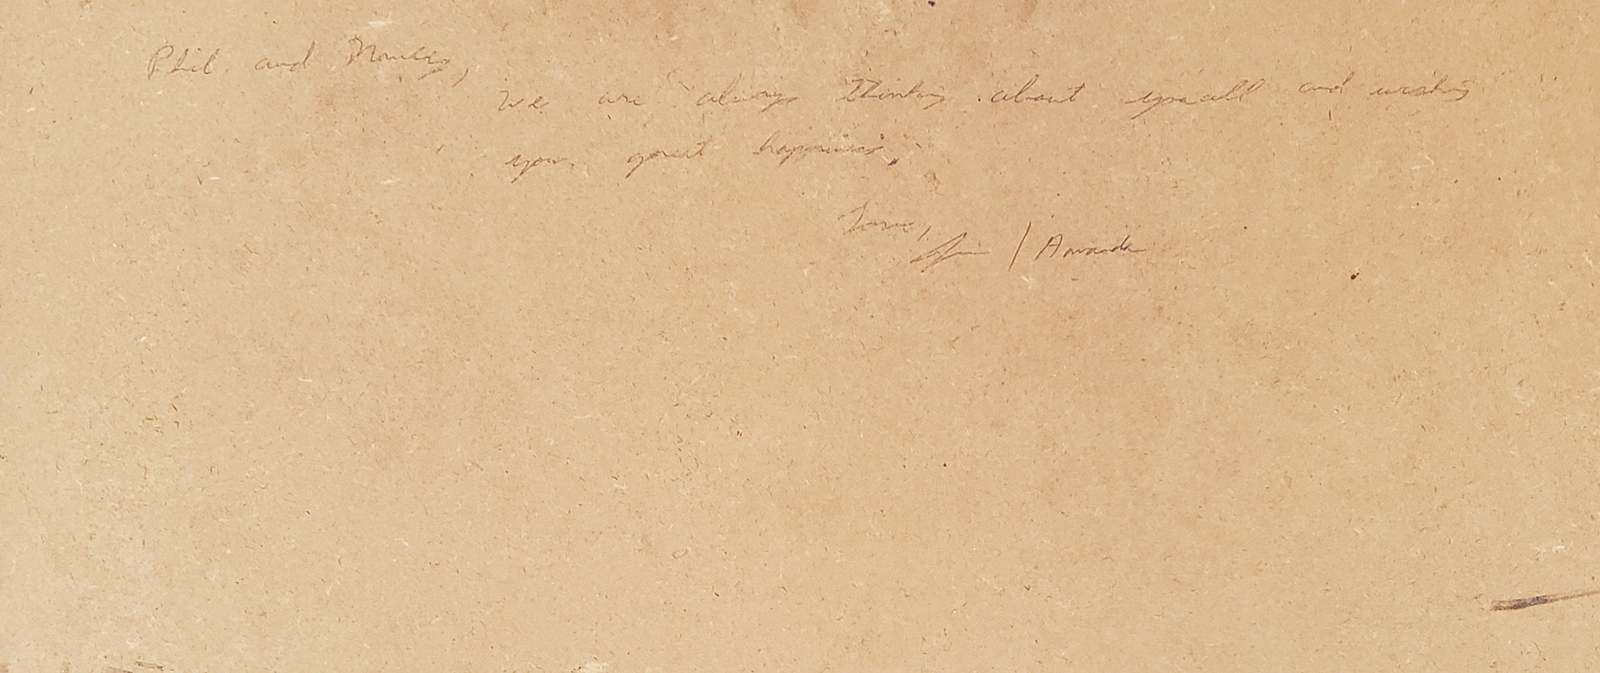 Phil and
We are always thinking about you all and wishing
you great happiness,
Love,
/ Amanda